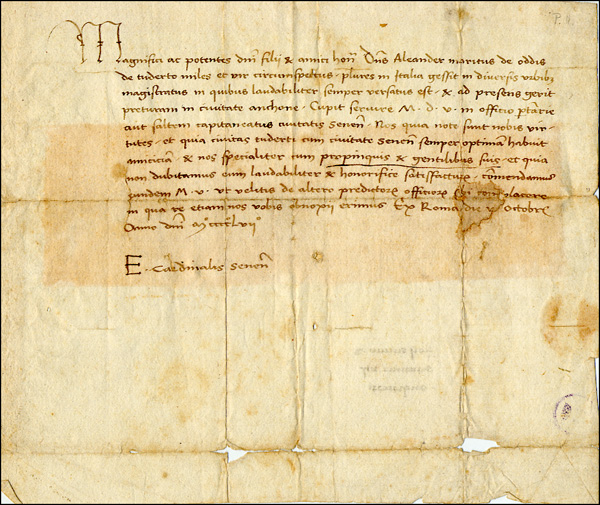 Magnifici ac potentes dnī filij & amici honrī Dns Aleander maritus de oddis
de tuderto miles et vir circunspectus plures in Italia gessit in diversis urbibus
magistratus in quibus laudabiliter semper versatus est & ad presens gerit
preturam in civitate anchone Cupit servire M. d. v. in officio ptārie
aut saltem capitaneatus civitatis Senen̄ Nos quia note sunt nobis vir-
tutes et quia civitas tuderti cum civitate Senen̄ semper optimam habuit
amicitiam & nos specialiter cum propinquis & gentilibus suis et quia
non dubitamus eum laudabiliter & honorifice satisfacturum comendamus
eundem M. v. ut velitis de altero predictorum officiorum complacere
in qua re etiam nos vobis obnoxii erimus Ex Roma die x Octobris
Anno dnī mͦccccͦlviiͦ
E. Cardinalis Senen̄